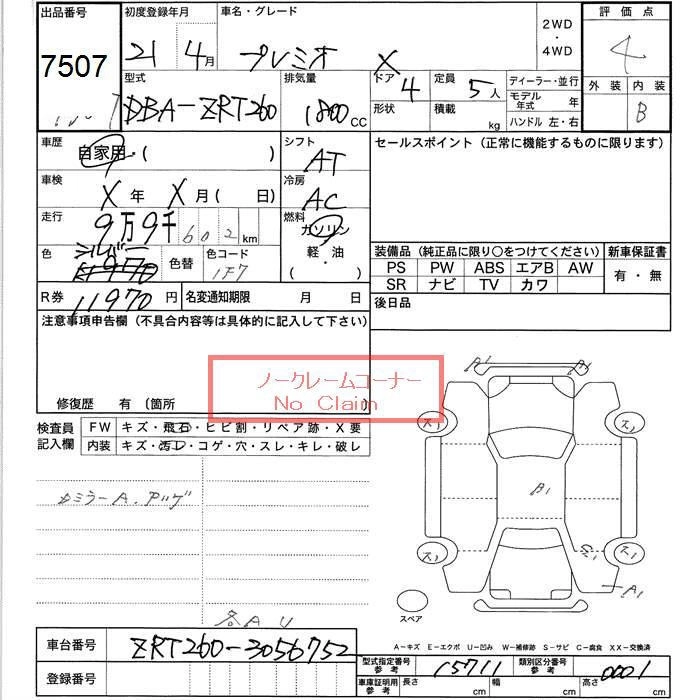 出品番号 初度登録年月 車名・グレード 2WD・4WD 評価点
7507 21年4月 プレミオ X 4
型式 排気量 ドア 定員 ディーラー・並行 外装 内装
DBA-ZRT260 1800cc 4 5人 モデル年式 年 B
形状 積載 kg ハンドル 左・右
車歴 自家用・( ) シフト AT セールスポイント(正常に機能するものに限ります)
車検 X年 X月( 日) 冷房 AC
走行 9万9千602km 燃料 ガソリン・軽油・( )
色 シルバー 色替 色コード 1F7
装備品(純正品に限り○をつけてください) 新車保証書
PS PW ABS エアB AW 有・無
SR ナビ TV カワ
R券 11970円 名変通知期限 月 日 後日品
注意事項申告欄(不具合内容等は具体的に記入して下さい)
ノークレームコーナー
No Claim
修復歴 有〔箇所 〕
検査員記入欄 FW キズ・飛石・ヒビ割・リペア跡・X要
内装 キズ・汚レ・コゲ・穴・スレ・キレ・破レ
A1
ス1 ス1
B1
ス1 ス1
A1
スペア
各AU
A-キズ E-エクボ U-凹み W-補修跡 S-サビ C-腐食 XX-交換済
車台番号 ZRT260-3056752
型式指定番号参考 15711 類別区分番号参考 0001
登録番号
車庫証明用参考 長さ cm 幅 cm 高さ cm